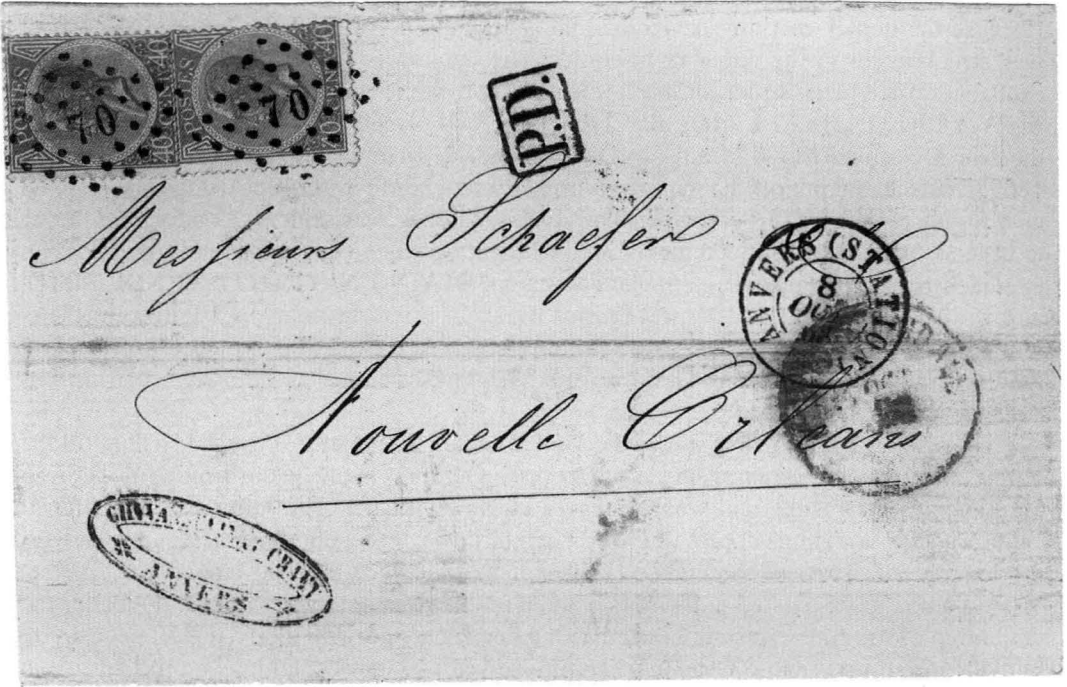 POSTES 40 CENT. 40
POSTES 40 CEN 40
70
70
P.D.
Messieurs Schaefer
ANVERS (STATION)
8
OCT
Nouvelle Orleans
ANVERS